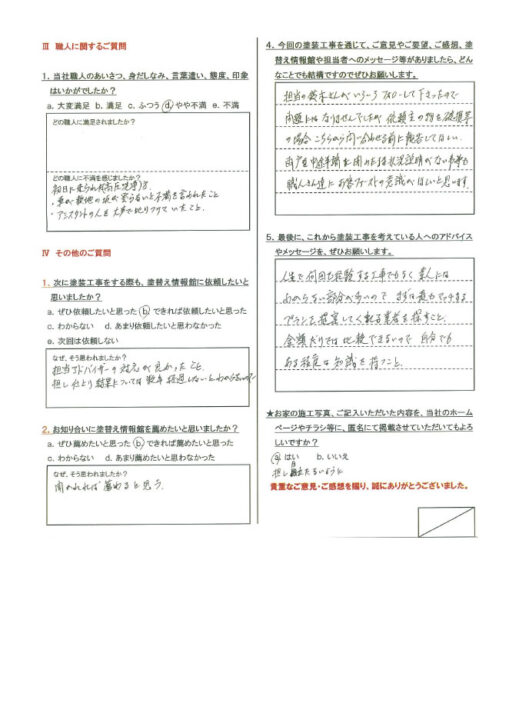 Ⅲ 職人に関するご質問
1. 当社職人のあいさつ、身だしなみ、言葉遣い、態度、印象
はいかがでしたか？
a. 大変満足 b. 満足 c. ふつう d. やや不満 e. 不満
どの職人に満足されましたか？
どの職人に不満を感じましたか？
初日に来られた高圧洗浄の
・車が敷地の
不満を言われたこと
・アシスタントの人を大声で
いたこと.
Ⅳ その他のご質問
1. 次に塗装工事をする際も、塗替え情報館に依頼したいと
思いましたか？
a. ぜひ依頼したいと思った b. できれば依頼したいと思った
c. わからない d. あまり依頼したいと思わなかった
e. 次回は依頼しない
なぜ、そう思われましたか？
担当アドバイザーの対応が良かったこと.
但し仕上り結果については数年経過しないとわからないので
2. お知り合いに塗替え情報館を薦めたいと思いましたか？
a. ぜひ薦めたいと思った b. できれば薦めたいと思った
c. わからない d. あまり薦めたいと思わなかった
なぜ、そう思われましたか？
聞かれれば薦めると思う.
4. 今回の塗装工事を通じて、ご意見やご要望、ご感想、塗
替え情報館や担当者へのメッセージ等がありましたら、どん
なことでも結構ですのでぜひお願いします。
担当の
さんがいろいろフォローして下さったので
問題とはなりませんでしたが
の場合こちらから問い合わせる前に報告してほしい.
職人さん達に
の意識がほしいと思います
5. 最後に、これから塗装工事を考えている人へのアドバイス
やメッセージを、ぜひお願いします。
人生で何回も経験する工事でもなく素人には
わからない部分が多いので まずは最も
プランを提案してくれる業者を探すこと.
金額だけでは比較できないので 自分でも
ある程度は知識を持つこと.
★お家の施工写真、ご記入いただいた内容を、当社のホーム
ページやチラシ等に、匿名にて掲載させていただいてもよろ
しいですか？
a. はい b. いいえ
但し
ないように
貴重なご意見・ご感想を賜り、誠にありがとうございました。